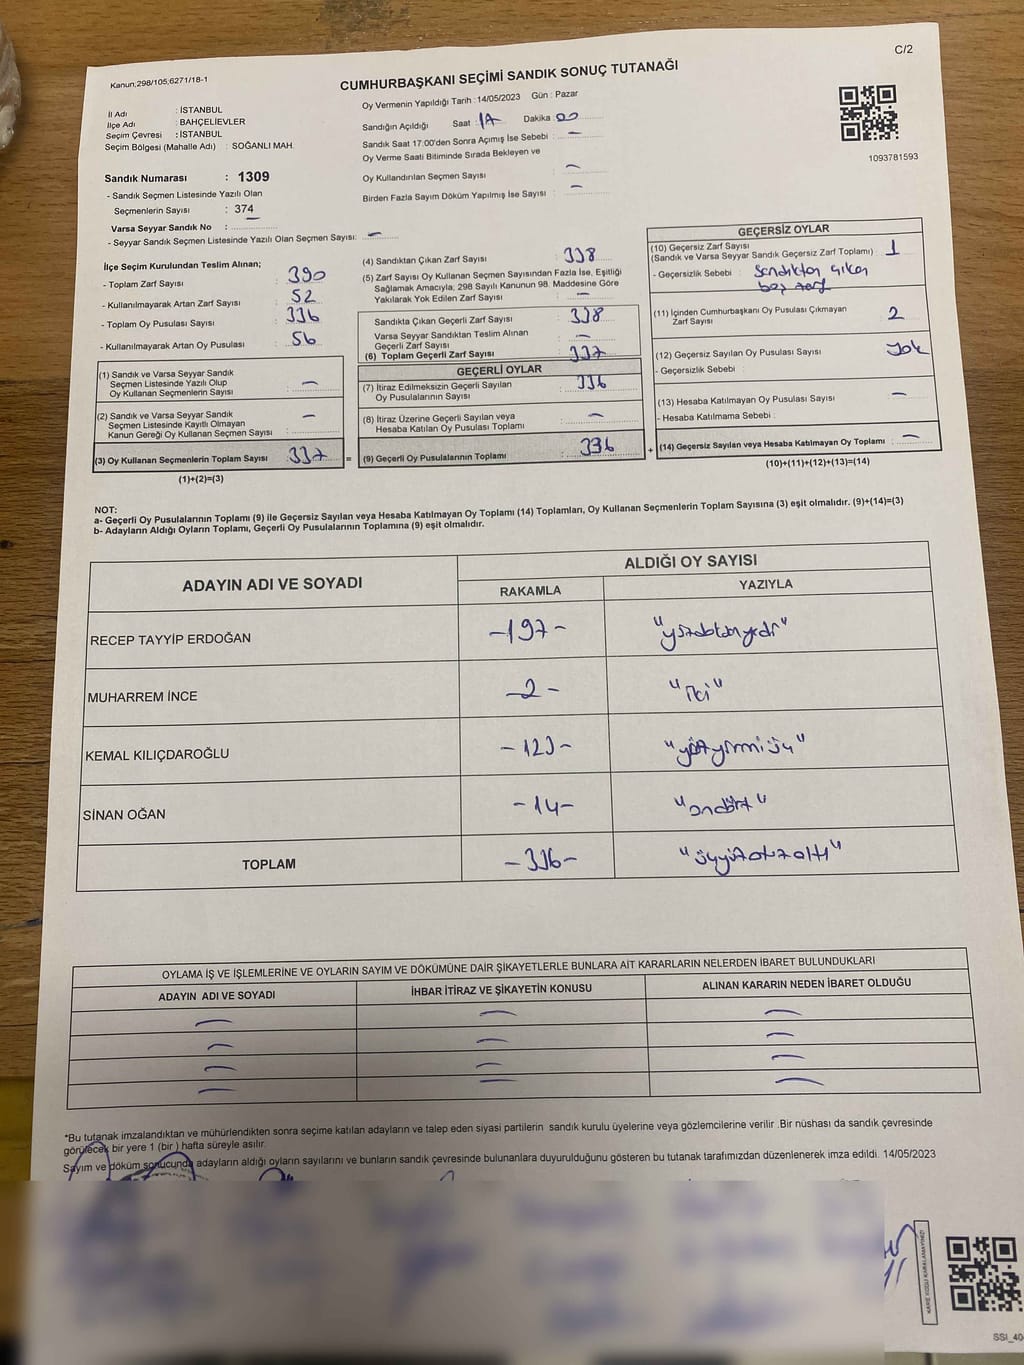 C/2
Kanun:298/105;6271/18-1
CUMHURBAŞKANI SEÇİMİ SANDIK SONUÇ TUTANAĞI
İl Adı : İSTANBUL
İlçe Adı : BAHÇELİEVLER
Seçim Çevresi : İSTANBUL
Seçim Bölgesi (Mahalle Adı) : SOĞANLI MAH.
Sandık Numarası : 1309
- Sandık Seçmen Listesinde Yazılı Olan
Seçmenlerin Sayısı : 374
Varsa Seyyar Sandık No : –
- Seyyar Sandık Seçmen Listesinde Yazılı Olan Seçmen Sayısı: –
Oy Vermenin Yapıldığı Tarih : 14/05/2023 Gün : Pazar
Sandığın Açıldığı Saat : 17 Dakika : 00
Sandık Saat 17:00'den Sonra Açımış İse Sebebi : –
Oy Verme Saati Bitiminde Sırada Bekleyen ve
Oy Kullandırılan Seçmen Sayısı –
Birden Fazla Sayım Döküm Yapılmış İse Sayısı : –
1093781593
İlçe Seçim Kurulundan Teslim Alınan;
- Toplam Zarf Sayısı : 390
- Kullanılmayarak Artan Zarf Sayısı : 52
- Toplam Oy Pusulası Sayısı : 336
- Kullanılmayarak Artan Oy Pusulası : 56
(1) Sandık ve Varsa Seyyar Sandık
Seçmen Listesinde Yazılı Olup
Oy Kullanan Seçmenlerin Sayısı : –
(2) Sandık ve Varsa Seyyar Sandık
Seçmen Listesinde Kayıtlı Olmayan
Kanun Gereği Oy Kullanan Seçmen Sayısı : –
(3) Oy Kullanan Seçmenlerin Toplam Sayısı : 337 =
(1)+(2)=(3)
(4) Sandıktan Çıkan Zarf Sayısı : 338
(5) Zarf Sayısı Oy Kullanan Seçmen Sayısından Fazla İse, Eşitliği
Sağlamak Amacıyla, 298 Sayılı Kanunun 98. Maddesine Göre
Yakılarak Yok Edilen Zarf Sayısı : –
Sandıkta Çıkan Geçerli Zarf Sayısı : 338
Varsa Seyyar Sandıktan Teslim Alınan
Geçerli Zarf Sayısı : –
(6) Toplam Geçerli Zarf Sayısı : 337
GEÇERLİ OYLAR
(7) İtiraz Edilmeksizin Geçerli Sayılan
Oy Pusulasının Sayısı : 336
(8) İtiraz Üzerine Geçerli Sayılan veya
Hesaba Katılan Oy Pusulası Toplamı : –
(9) Geçerli Oy Pusulalarının Toplamı : 336 +
GEÇERSİZ OYLAR
(10) Geçersiz Zarf Sayısı
(Sandık ve Varsa Seyyar Sandık Geçersiz Zarf Toplamı) : 1
- Geçersizlik Sebebi : Sandıktan çıkan
boş zarf
(11) İçinden Cumhurbaşkanı Oy Pusulası Çıkmayan
Zarf Sayısı 2
(12) Geçersiz Sayılan Oy Pusulası Sayısı : yok
- Geçersizlik Sebebi :
(13) Hesaba Katılmayan Oy Pusulası Sayısı : –
- Hesaba Katılmama Sebebi :
(14) Geçersiz Sayılan veya Hesaba Katılmayan Oy Toplamı : –
(10)+(11)+(12)+(13)=(14)
NOT:
a- Geçerli Oy Pusulalarının Toplamı (9) ile Geçersiz Sayılan veya Hesaba Katılmayan Oy Toplamı (14) Toplamları, Oy Kullanan Seçmenlerin Toplam Sayısına (3) eşit olmalıdır. (9)+(14)=(3)
b- Adayların Aldığı Oyların Toplamı, Geçerli Oy Pusulalarının Toplamına (9) eşit olmalıdır.
ADAYIN ADI VE SOYADI
ALDIĞI OY SAYISI
RAKAMLA YAZIYLA
RECEP TAYYİP ERDOĞAN -197- "yüzdoksanyedi"
MUHARREM İNCE -2- "iki"
KEMAL KILIÇDAROĞLU -123- "yüzyirmiüç"
SİNAN OĞAN -14- "ondört"
TOPLAM -336- "üçyüzotuzaltı"
OYLAMA İŞ VE İŞLEMLERİNE VE OYLARIN SAYIM VE DÖKÜMÜNE DAİR ŞİKAYETLERLE BUNLARA AİT KARARLARIN NELERDEN İBARET BULUNDUKLARI
ADAYIN ADI VE SOYADI İHBAR İTİRAZ VE ŞİKAYETİN KONUSU ALINAN KARARIN NEDEN İBARET OLDUĞU
– – –
– – –
– – –
– – –
*Bu tutanak imzalandıktan ve mühürlendikten sonra seçime katılan adayların ve talep eden siyasi partilerin sandık kurulu üyelerine veya gözlemcilerine verilir .Bir nüshası da sandık çevresinde
görülecek bir yere 1 (bir ) hafta süreyle asılır.
Sayım ve döküm sonucunda adayların aldığı oyların sayılarını ve bunların sandık çevresinde bulunanlara duyurulduğunu gösteren bu tutanak tarafımızdan düzenlenerek imza edildi. 14/05/2023
KARE KODU KARALAMAYINIZ!
SSI_40